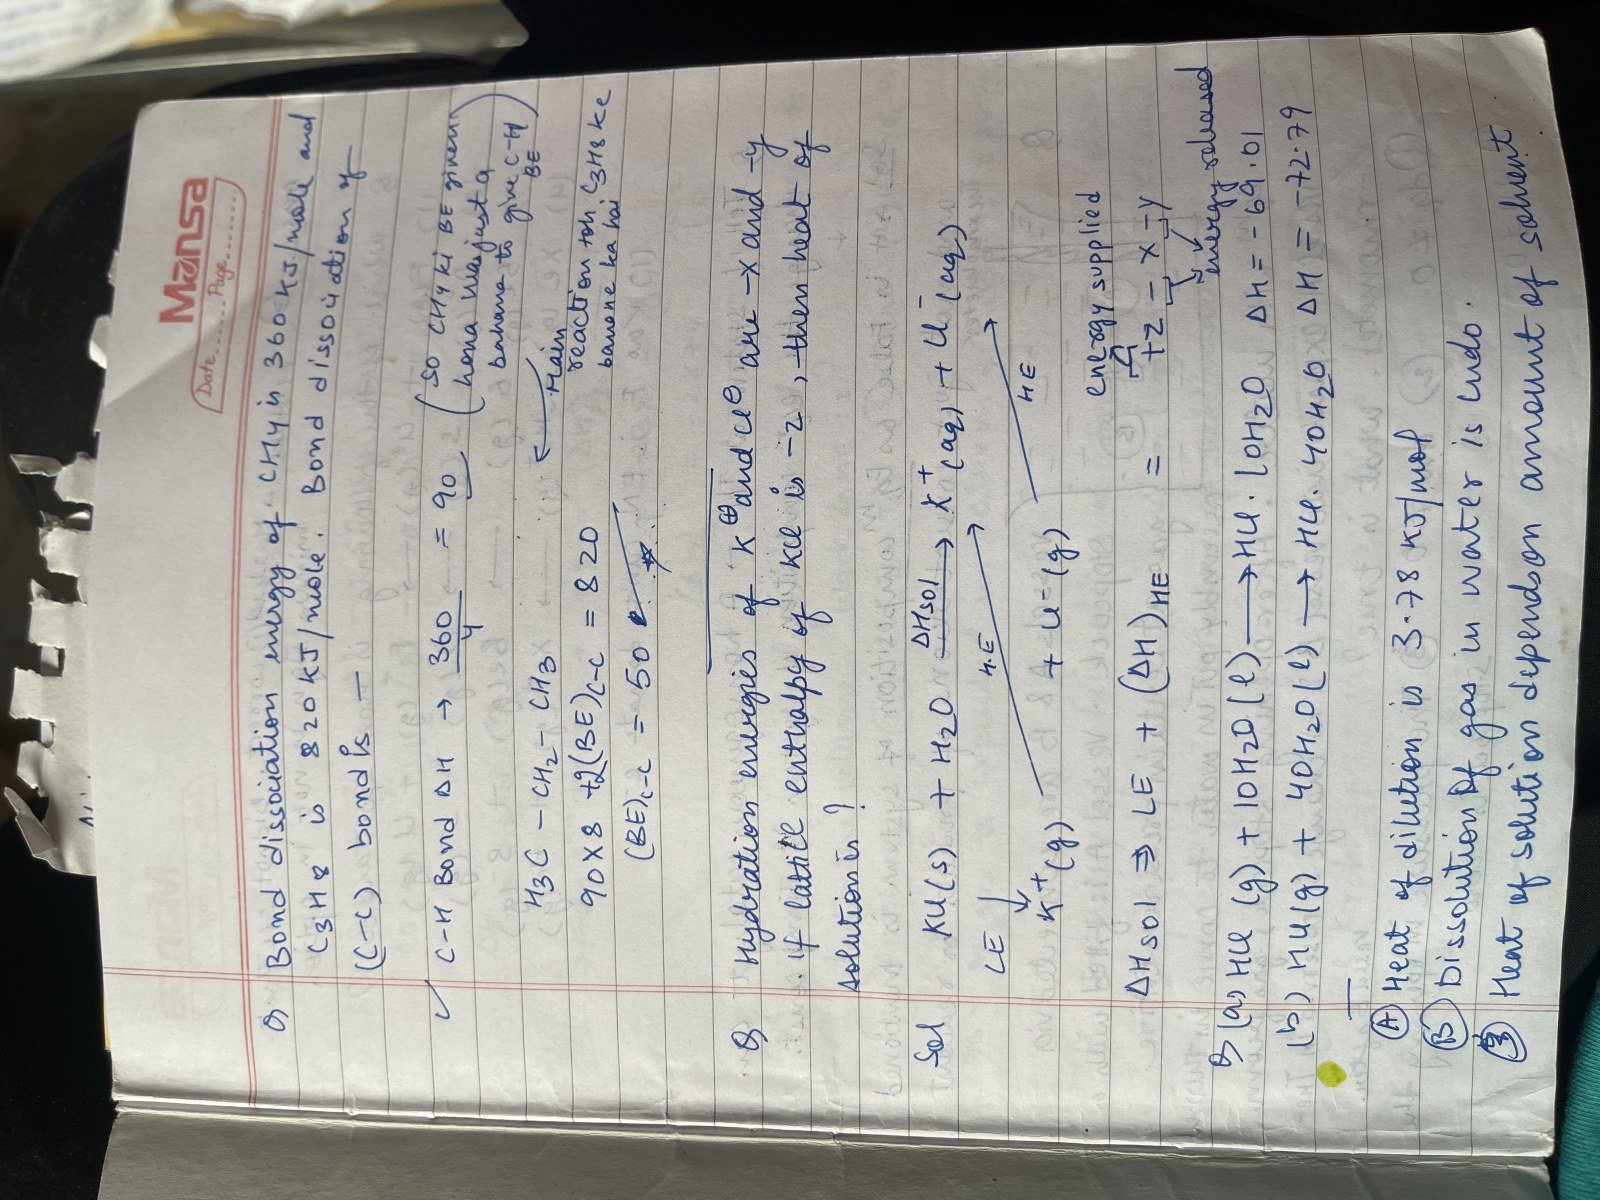 Mansa
Date.......Page........
Q Bond dissociation energy of CH4 is 360 KJ/mole and
C3H8 is 820 KJ/mole. Bond dissociation of
(C-C) bond is —
✓ C-H Bond ΔH → 360/4 = 90 (so CH4 ki BE given
hona was just a
bahana to give C-H
BE)
H3C - CH2 - CH3 ← Main
reaction toh C3H8 ke
banane ka hai
90×8 + 2(BE)C-C = 820
(BE)C-C = 50
Q Hydration energies of K⊕ and Cl⊖ are -x and -y
. If lattice enthalpy of KCl is -z, then heat of
solution is ?
Sol KCl(s) + H2O ΔHsol → K+(aq) + Cl-(aq)
LE H.E HE
K+(g) + Cl-(g)
energy supplied
ΔHsol ⇒ LE + (ΔH)HE = +z - x - y
energy released
Q (a) HCl (g) + 10H2O(l) → HCl. 10H2O ΔH = -69.01
(b) HCl(g) + 40H2O(l) → HCl. 40H2O ΔH = -72.79
(A) Heat of dilution is 3.78 KJ/mol
(B) Dissolution of gas in water is endo.
Heat of solution depends on amount of solvent